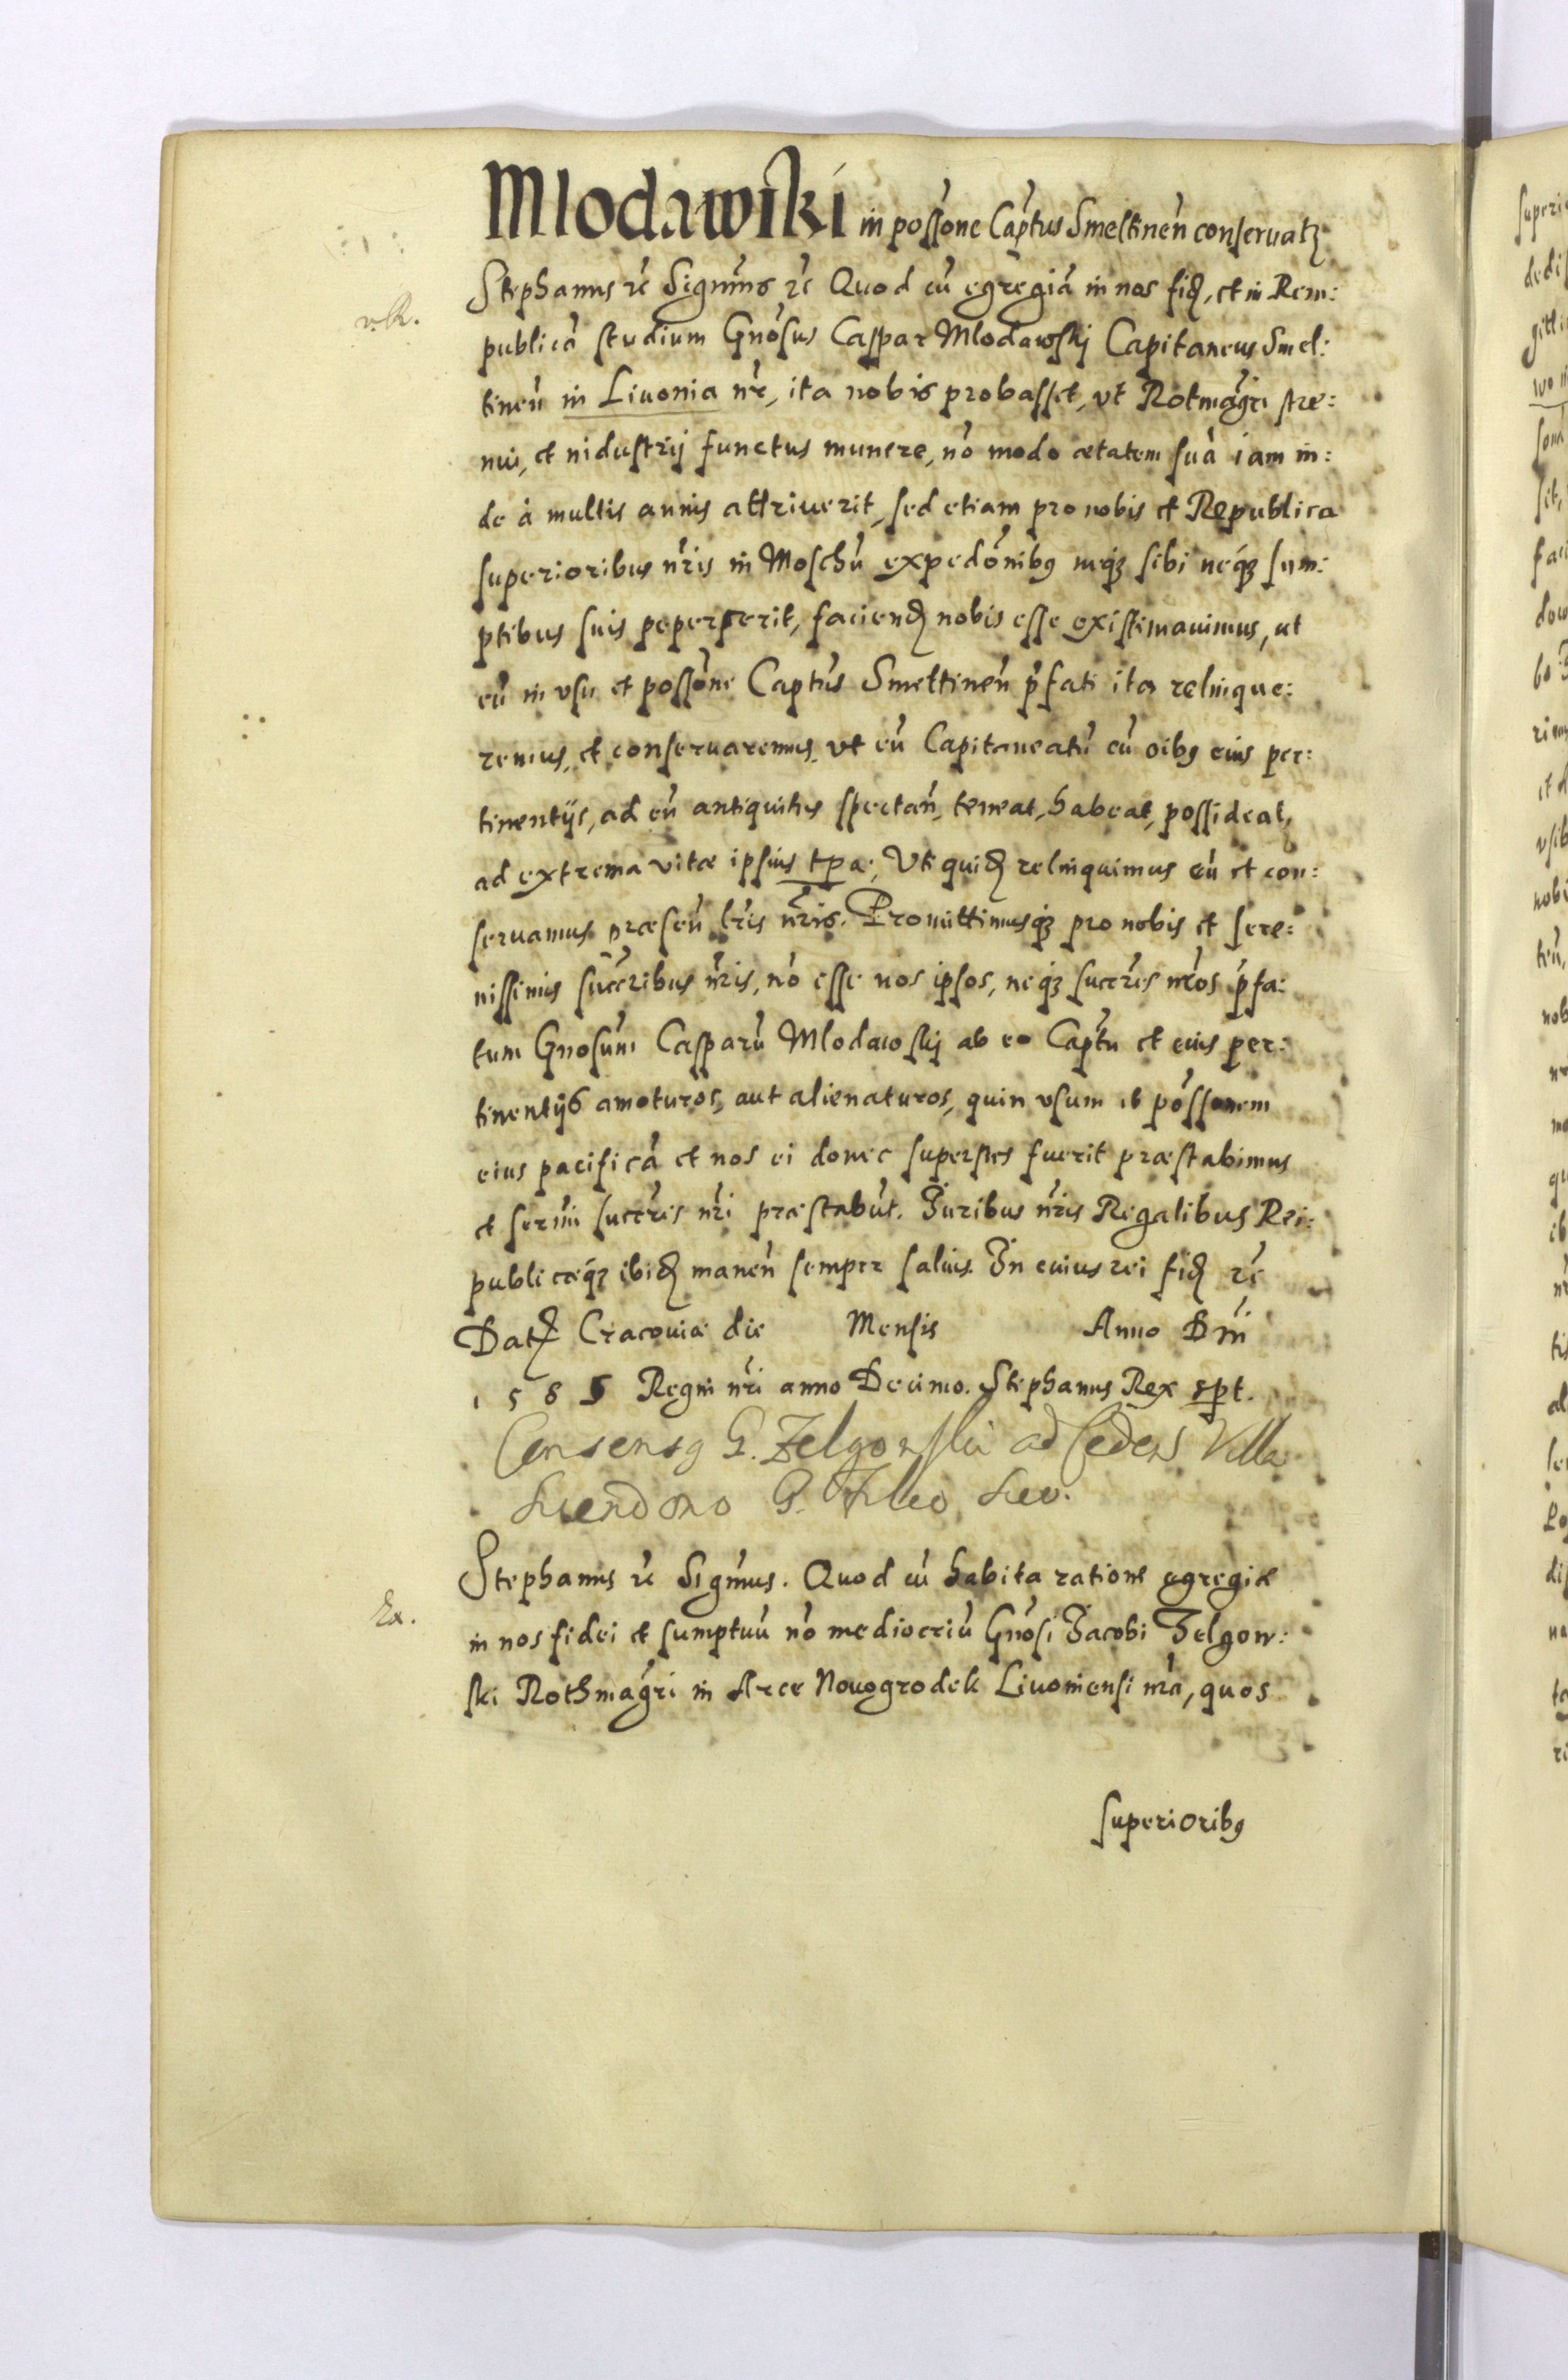 Mlodawski in possone Captus Smeltinen conseruatz
Stephanus rc Signims rc Quod cu egregia in nos fid, et in Rem:
v. R.
publica studium Gnosus Caspar Mlodawskj Capitaneus Smel:
tinen in Liuonia nr, ita nobis probasset, vt Rotmagri stre:
nui, et nidustrij functus munere, no modo ætatem sua iam in:
de à multis annis attriuerit, sed etiam pro nobis et Republica
superioribus nris in Moschu expedonibg neqz sibi neqz sum:
ptibus suis pepercerit, faciend nobis esse existimauimus, ut
eu in vsu et possone Captus Smeltinen pfati ita relinque:
remus, et conseruaremus, vt eu Capitaneatu cu oibg eius per:
tinentijs, ad eu antiquitus spectan, teneat, habeat, possideat,
ad extrema vitæ ipsius tpa; Vti quid relinquimus eu et con:
seruamus præsen lris nris. Promittimusqz pro nobis et sere:
nissimis succribus nris, no esse nos ipsos, neqz succres nros pfa:
tum Gnosum Casparu Mlodawskj ab eo Captu et eius per:
tinentijs amoturos, aut alienaturos, quin vsum et possonem
eius pacifica et nos ei donec superstes fuerit præstabimus
et sermi succres nri præstabut. Juribus nris Regalibus Rei:
publicæqz ibid manen semper saluis. In cuius rei fid rc
Datz Cracouiæ die Mensis Anno Dni
1585 Regni nri anno Decimo. Stephanus Rex spt.
Consensg G. Zelgowski ad Cedend Villa
G. Leo.
Stephanus rc Signus. Quod cu habita ratione egregiæ
Ex.
in nos fidei et sumptuu no mediocriu Gnosi Jacobi Zelgow:
ski Rothmagri in Arce Nouogrodek Liuoniensi nra, quos
superioribg